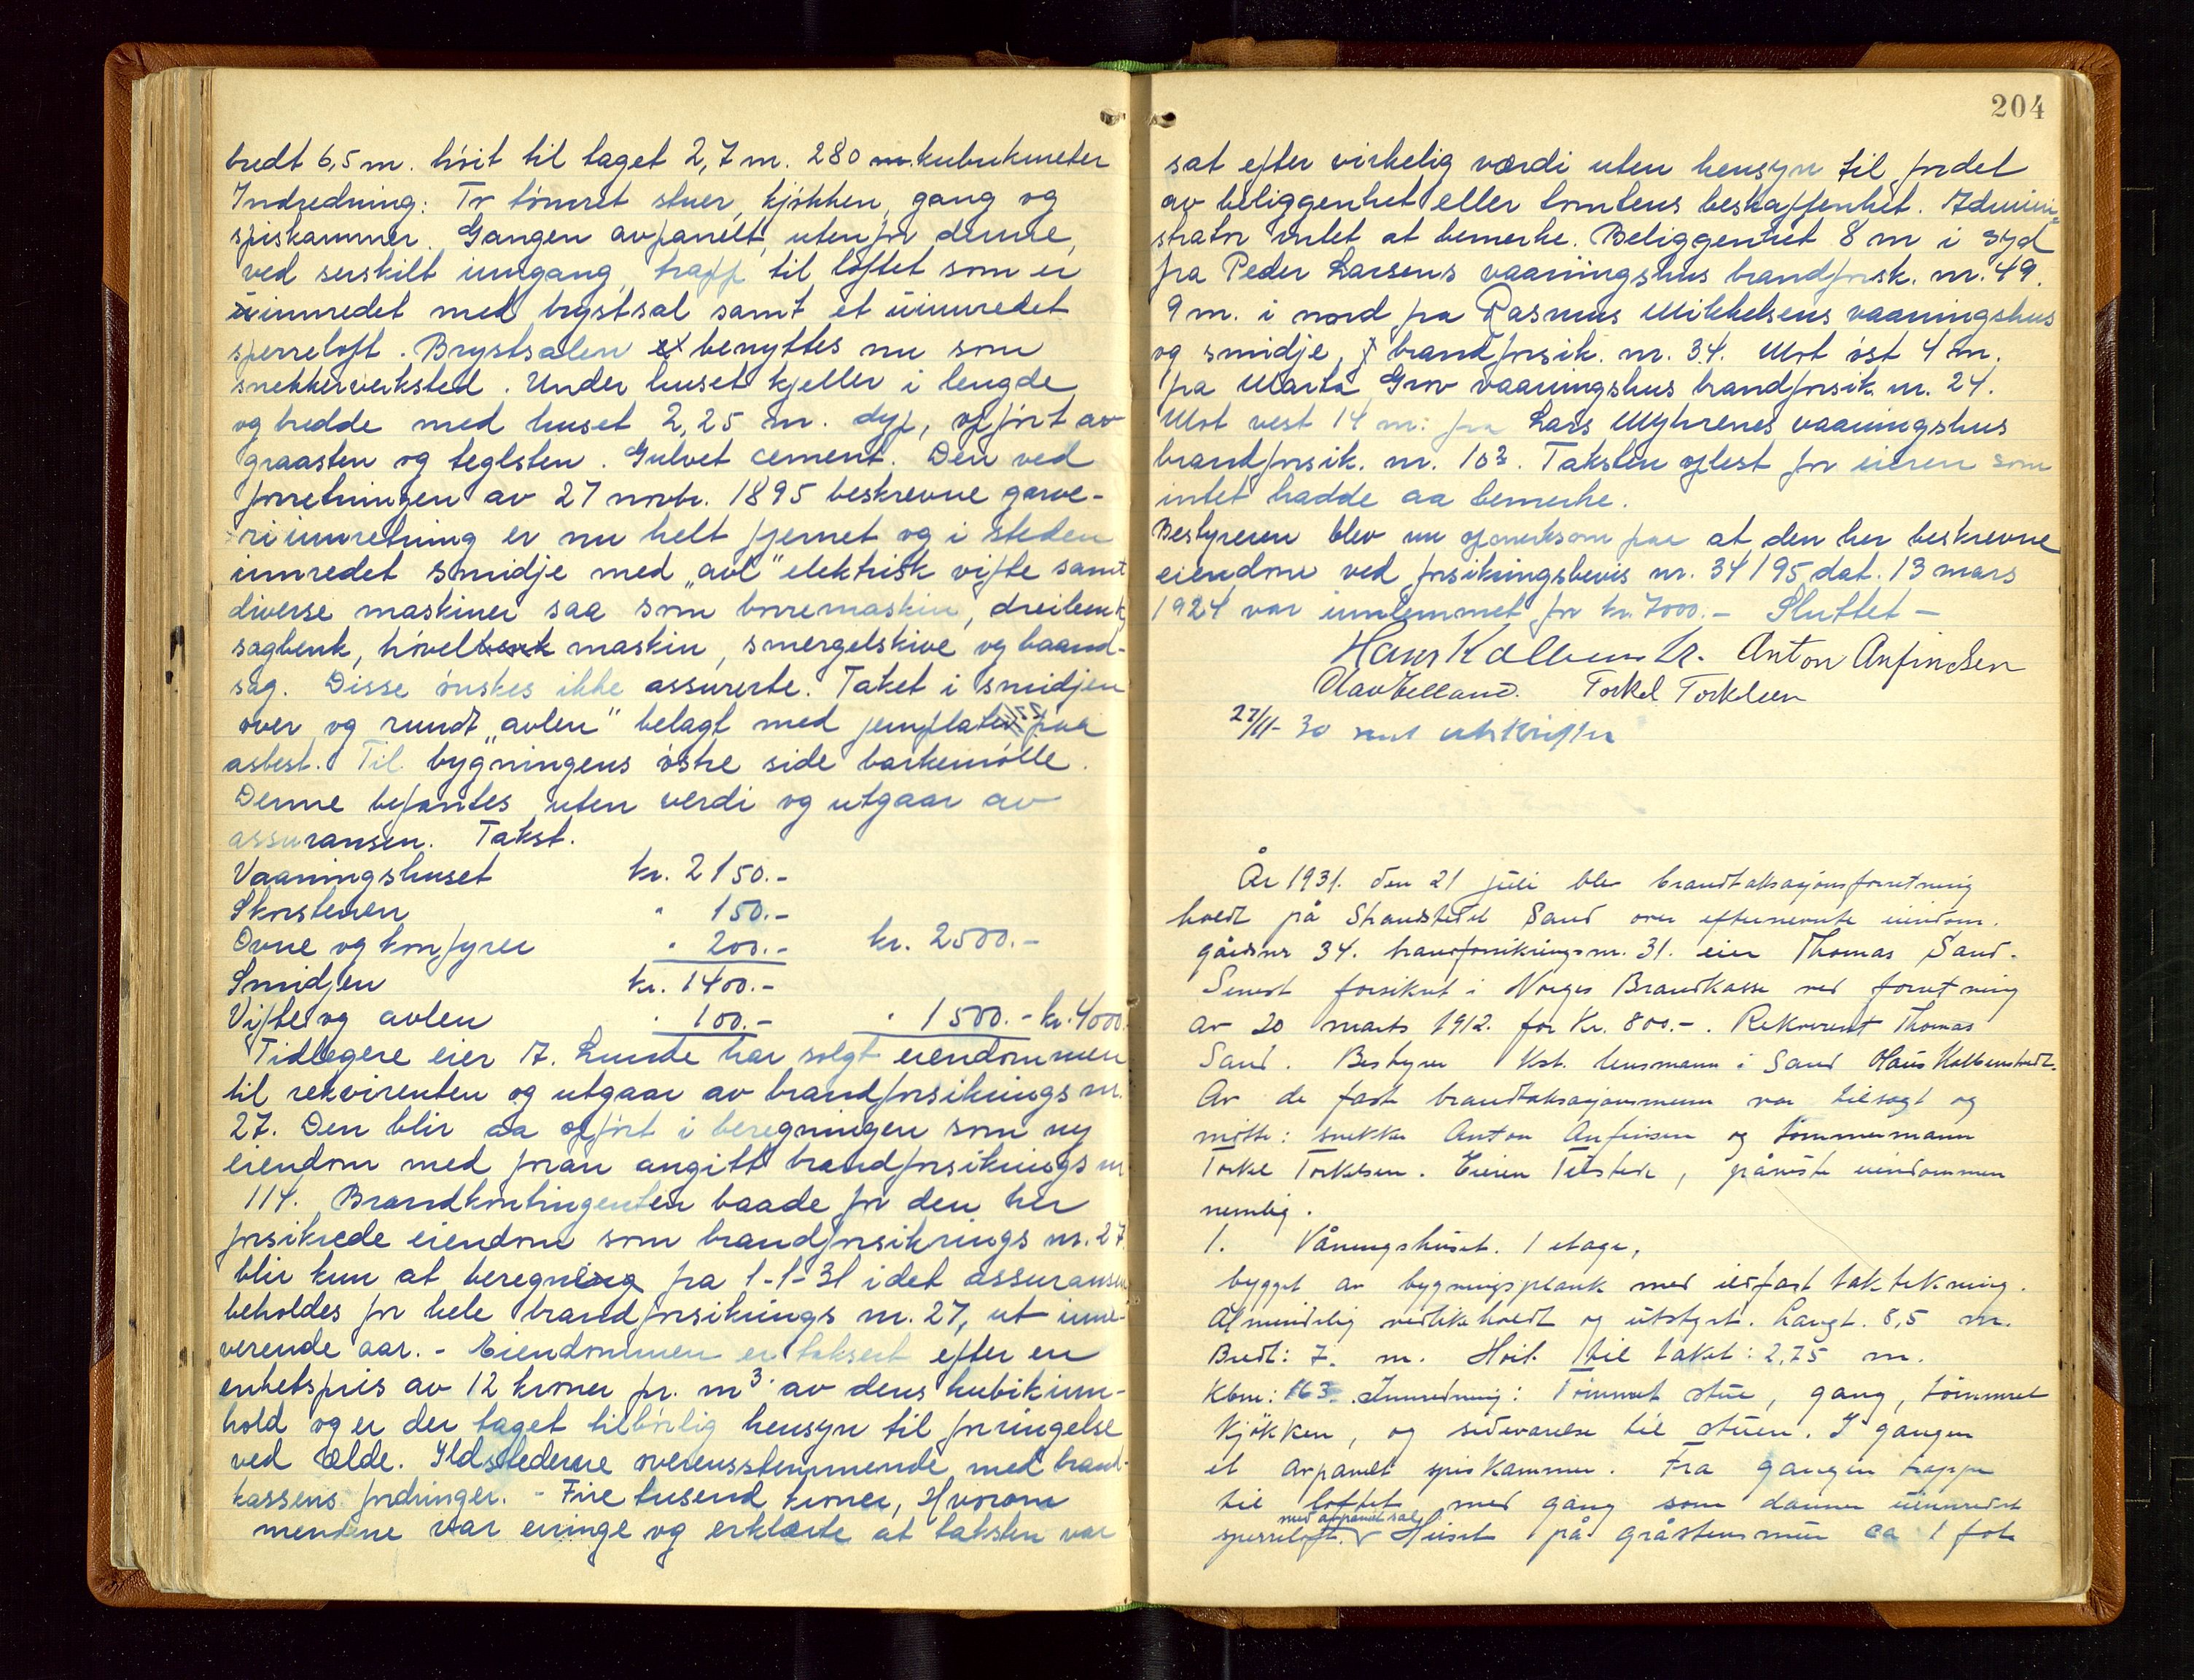 bredt 6,5 m. höit til taget 2,7 m. 280 m. kubukmeter
Indredning: To tömret stuer, kjökken, gang og
spiskammer. Gangen avpanelt, utenfor denne,
ved serskilt inngang, trapp til loftet som er
innredet med brystsal samt et uinnredet
sperreloft. Brystsalen benyttes nu som
snekkerverksted. Under huset kjeller i lengde
og bredde med huset 2,25 m. dyp, opfört av
graasten og teglsten. Gulvet cement. Den ved
forretningen av 27 novbr. 1895 beskrevne garve-
riinnretning er nu helt fjernet og i steden
innredet smidje med „avl" elektrisk vifte samt
diverse maskiner saa som borremaskin, dreibenk,
sagbenk, hövelbenk maskin, smergelskive og baand-
sag. Disse önskes ikke assurerte. Taket i smidjen
over og rundt „avlen" belagt med jernplater paa
asbest. Til bygningens östre side barkemölle.
Denne befantes uten verdi og utgaar av
assuransen. Takst.
Vaaningshuset kr. 2150.-
Skorstenen " 150.-
Ovne og komfyrer " 200.- kr. 2500.-
Smidjen kr. 1400.-
Vifte og avlen " 100.- " 1500.- kr. 4000
Tidlegere eier A. Lunde har solgt eiendommen
til rekvirenten og utgaar av brandforsikrings nr.
27. Den blir aa opfört i beregningen som ny
eiendom med foran angitt brandforsiknings nr
114. Brandkontingenten baade for den her
forsikrede eiendom som brandforsikrings nr. 27
blir kun at beregne fra 1-1-31 idet assuransen
beholdes for hele brandforsiknings nr. 27, ut inne-
verende aar. - Eiendommen er taksert efter en
enhetspris av 12 kroner pr. m³ av dens kubikinn-
hold og er der taget tilbörlig hensyn til forringelse
ved ælde. Ildstederne overensstemmende med brand-
kassens fordringer. - Fire tusend kroner, Hvorom
mendene var eninge og erklærte at taksten var
204
sat efter virkelig værdi uten hensyn til fordel
av beliggenhet eller tomtens beskaffenhet. Admini-
strator intet at bemerke. Beliggenhet 8 m i syd
fra Peder Larsens vaaningshus brandforsk. nr. 49.
9 m. i nord fra Rasmus Mikkelsens vaaningshus
og smidje, brandforsik. nr. 34. Mot öst 4 m.
fra Marta Grov vaaningshus brandforsik. nr. 24.
Mot vest 14 m. fra Lars Myhrenes vaaningshus
brandforsik. nr. 103. Taksten oplest for eieren som
intet hadde aa bemerke.
Bestyreren blev nu opmerksom paa at den her beskrevne
eiendom ved forsikringsbevis nr. 34195 dat. 13 mars
1924 var innlemmet for kr. 7000.- Sluttet -
Anton Anfindsen
Torkel Torkelsen
27/11-30 sent utskrifter
År 1931. den 21 juli blev brandtaksasjonsforretning
holdt på Strandstedet Sand over efternevnte eiendom.
gårdsnr 34. brandforsikringsnr. 31. eier Thomas Sand.
Senest forsikret i Norges Brandkasse ved forretning
av 20 marts 1912. for Kr. 800.-. Rekvirent Thomas
Sand. Bestyrer Kst. lensmann i Sand
Av de faste brandtaksasjonsmenn var tilsagt og
mötte: snekker Anton Anfinsen og tömmermann
Torkel Torkelsen. Eieren Tilstede, påviste eiendommen
nemlig.
1. Våningshuset. 1 etage,
bygget av bygningsplank med ildfast taktekning.
Almindelig vedlikeholdt og utstyrt. Langt. 8,5 m.
Bredt: 7. m. Höit til taket: 2,75 m.
Kbm: 163. Innredning: Tömmret stue, gang, tömmret
kjökken, og sideværelse til stuen. I gangen
et avpanelt spiskammer. Fra gangen trappe
til loftet med gang som danner uinnredet
med avpanelt sal
sperreloft. Huset på gråstensmur ca 1 fot